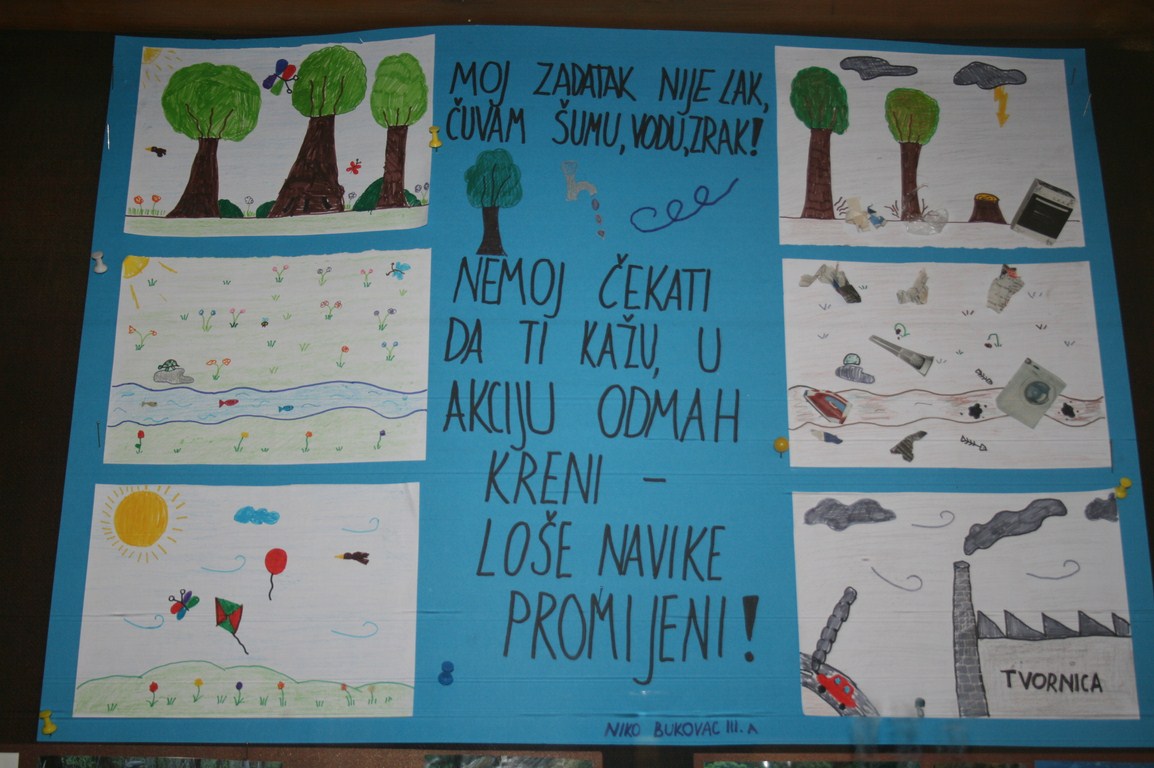 MOJ ZADATAK NIJE LAK,
ČUVAM ŠUMU, VODU, ZRAK!
NEMOJ ČEKATI
DA TI KAŽU, U
AKCIJU ODMAH
KRENI –
LOŠE NAVIKE
PROMIJENI!
TVORNICA
NIKO BUKOVAC III. A